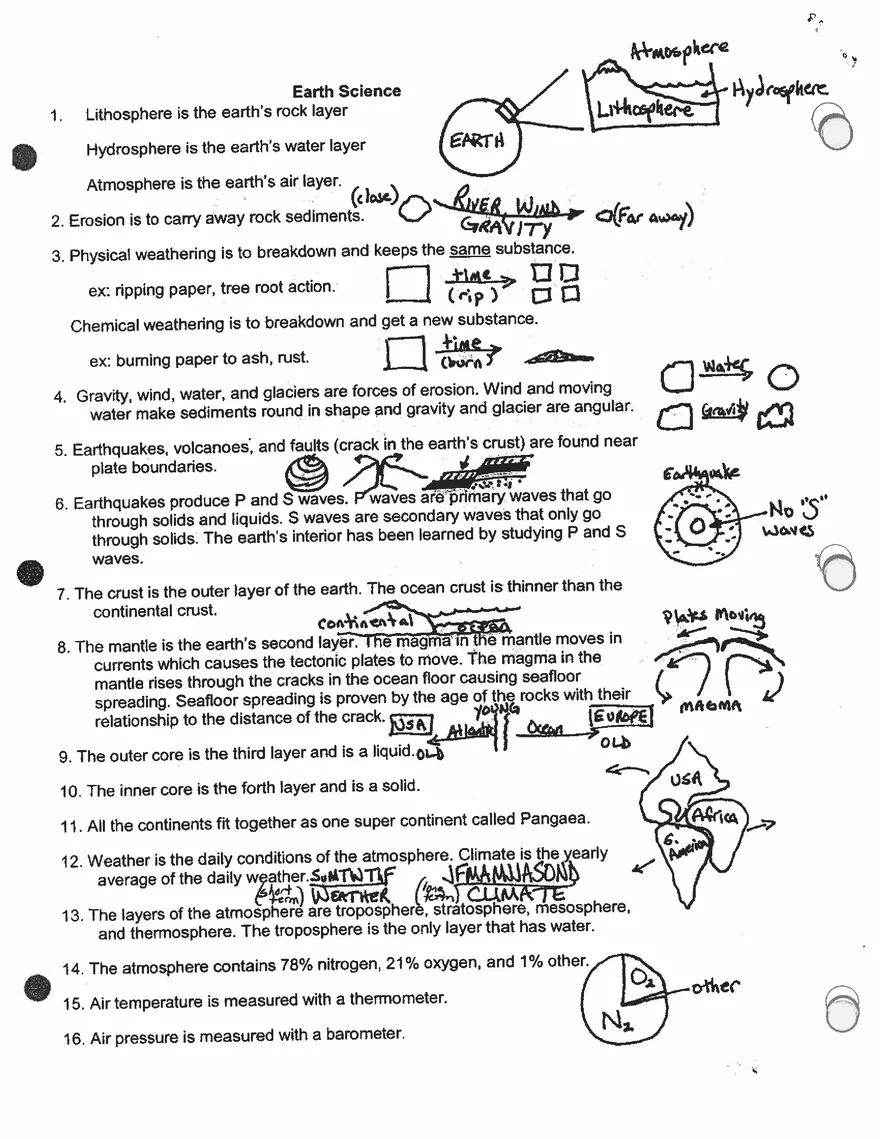 Atmosphere
Hydrosphere
Lithosphere
EARTH
Earth Science
1. Lithosphere is the earth's rock layer
Hydrosphere is the earth's water layer
Atmosphere is the earth's air layer.
(close) RIVER, WIND GRAVITY (Far away)
2. Erosion is to carry away rock sediments.
3. Physical weathering is to breakdown and keeps the same substance.
ex: ripping paper, tree root action.
time
(rip)
Chemical weathering is to breakdown and get a new substance.
ex: burning paper to ash, rust.
time
(burn)
Water
Gravity
4. Gravity, wind, water, and glaciers are forces of erosion. Wind and moving
water make sediments round in shape and gravity and glacier are angular.
5. Earthquakes, volcanoes, and faults (crack in the earth's crust) are found near
plate boundaries.
Earthquake
No "S"
waves
6. Earthquakes produce P and S waves. P waves are primary waves that go
through solids and liquids. S waves are secondary waves that only go
through solids. The earth's interior has been learned by studying P and S
waves.
7. The crust is the outer layer of the earth. The ocean crust is thinner than the
continental crust.
continental ocean
Plates Moving
MAGMA
8. The mantle is the earth's second layer. The magma in the mantle moves in
currents which causes the tectonic plates to move. The magma in the
mantle rises through the cracks in the ocean floor causing seafloor
spreading. Seafloor spreading is proven by the age of the rocks with their
relationship to the distance of the crack.
YOUNG
USA Atlantic Ocean EUROPE
OLD OLD
9. The outer core is the third layer and is a liquid.
10. The inner core is the forth layer and is a solid.
USA
Africa
S. America
11. All the continents fit together as one super continent called Pangaea.
12. Weather is the daily conditions of the atmosphere. Climate is the yearly
average of the daily weather.
SuMTWTHF JFMAMJJASOND
(short term) WEATHER (long term) CLIMATE
13. The layers of the atmosphere are troposphere, stratosphere, mesosphere,
and thermosphere. The troposphere is the only layer that has water.
14. The atmosphere contains 78% nitrogen, 21% oxygen, and 1% other.
O2
other
N2
15. Air temperature is measured with a thermometer.
16. Air pressure is measured with a barometer.